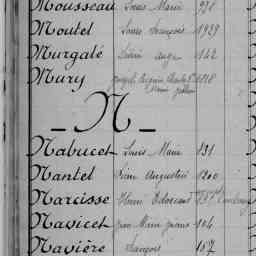 Mousseau Louis Marie 931
Moutel Louis François 1929
Murgalé Désiré Ange 142
Mury Joseph Eugène Charles 1818
Marie
— N —
Nabucet Louis Marie 131
Nantel Pierre Augustin 1200
Narcisse Henri Edouard
Navicet Jean Marie 104
Navière François 187